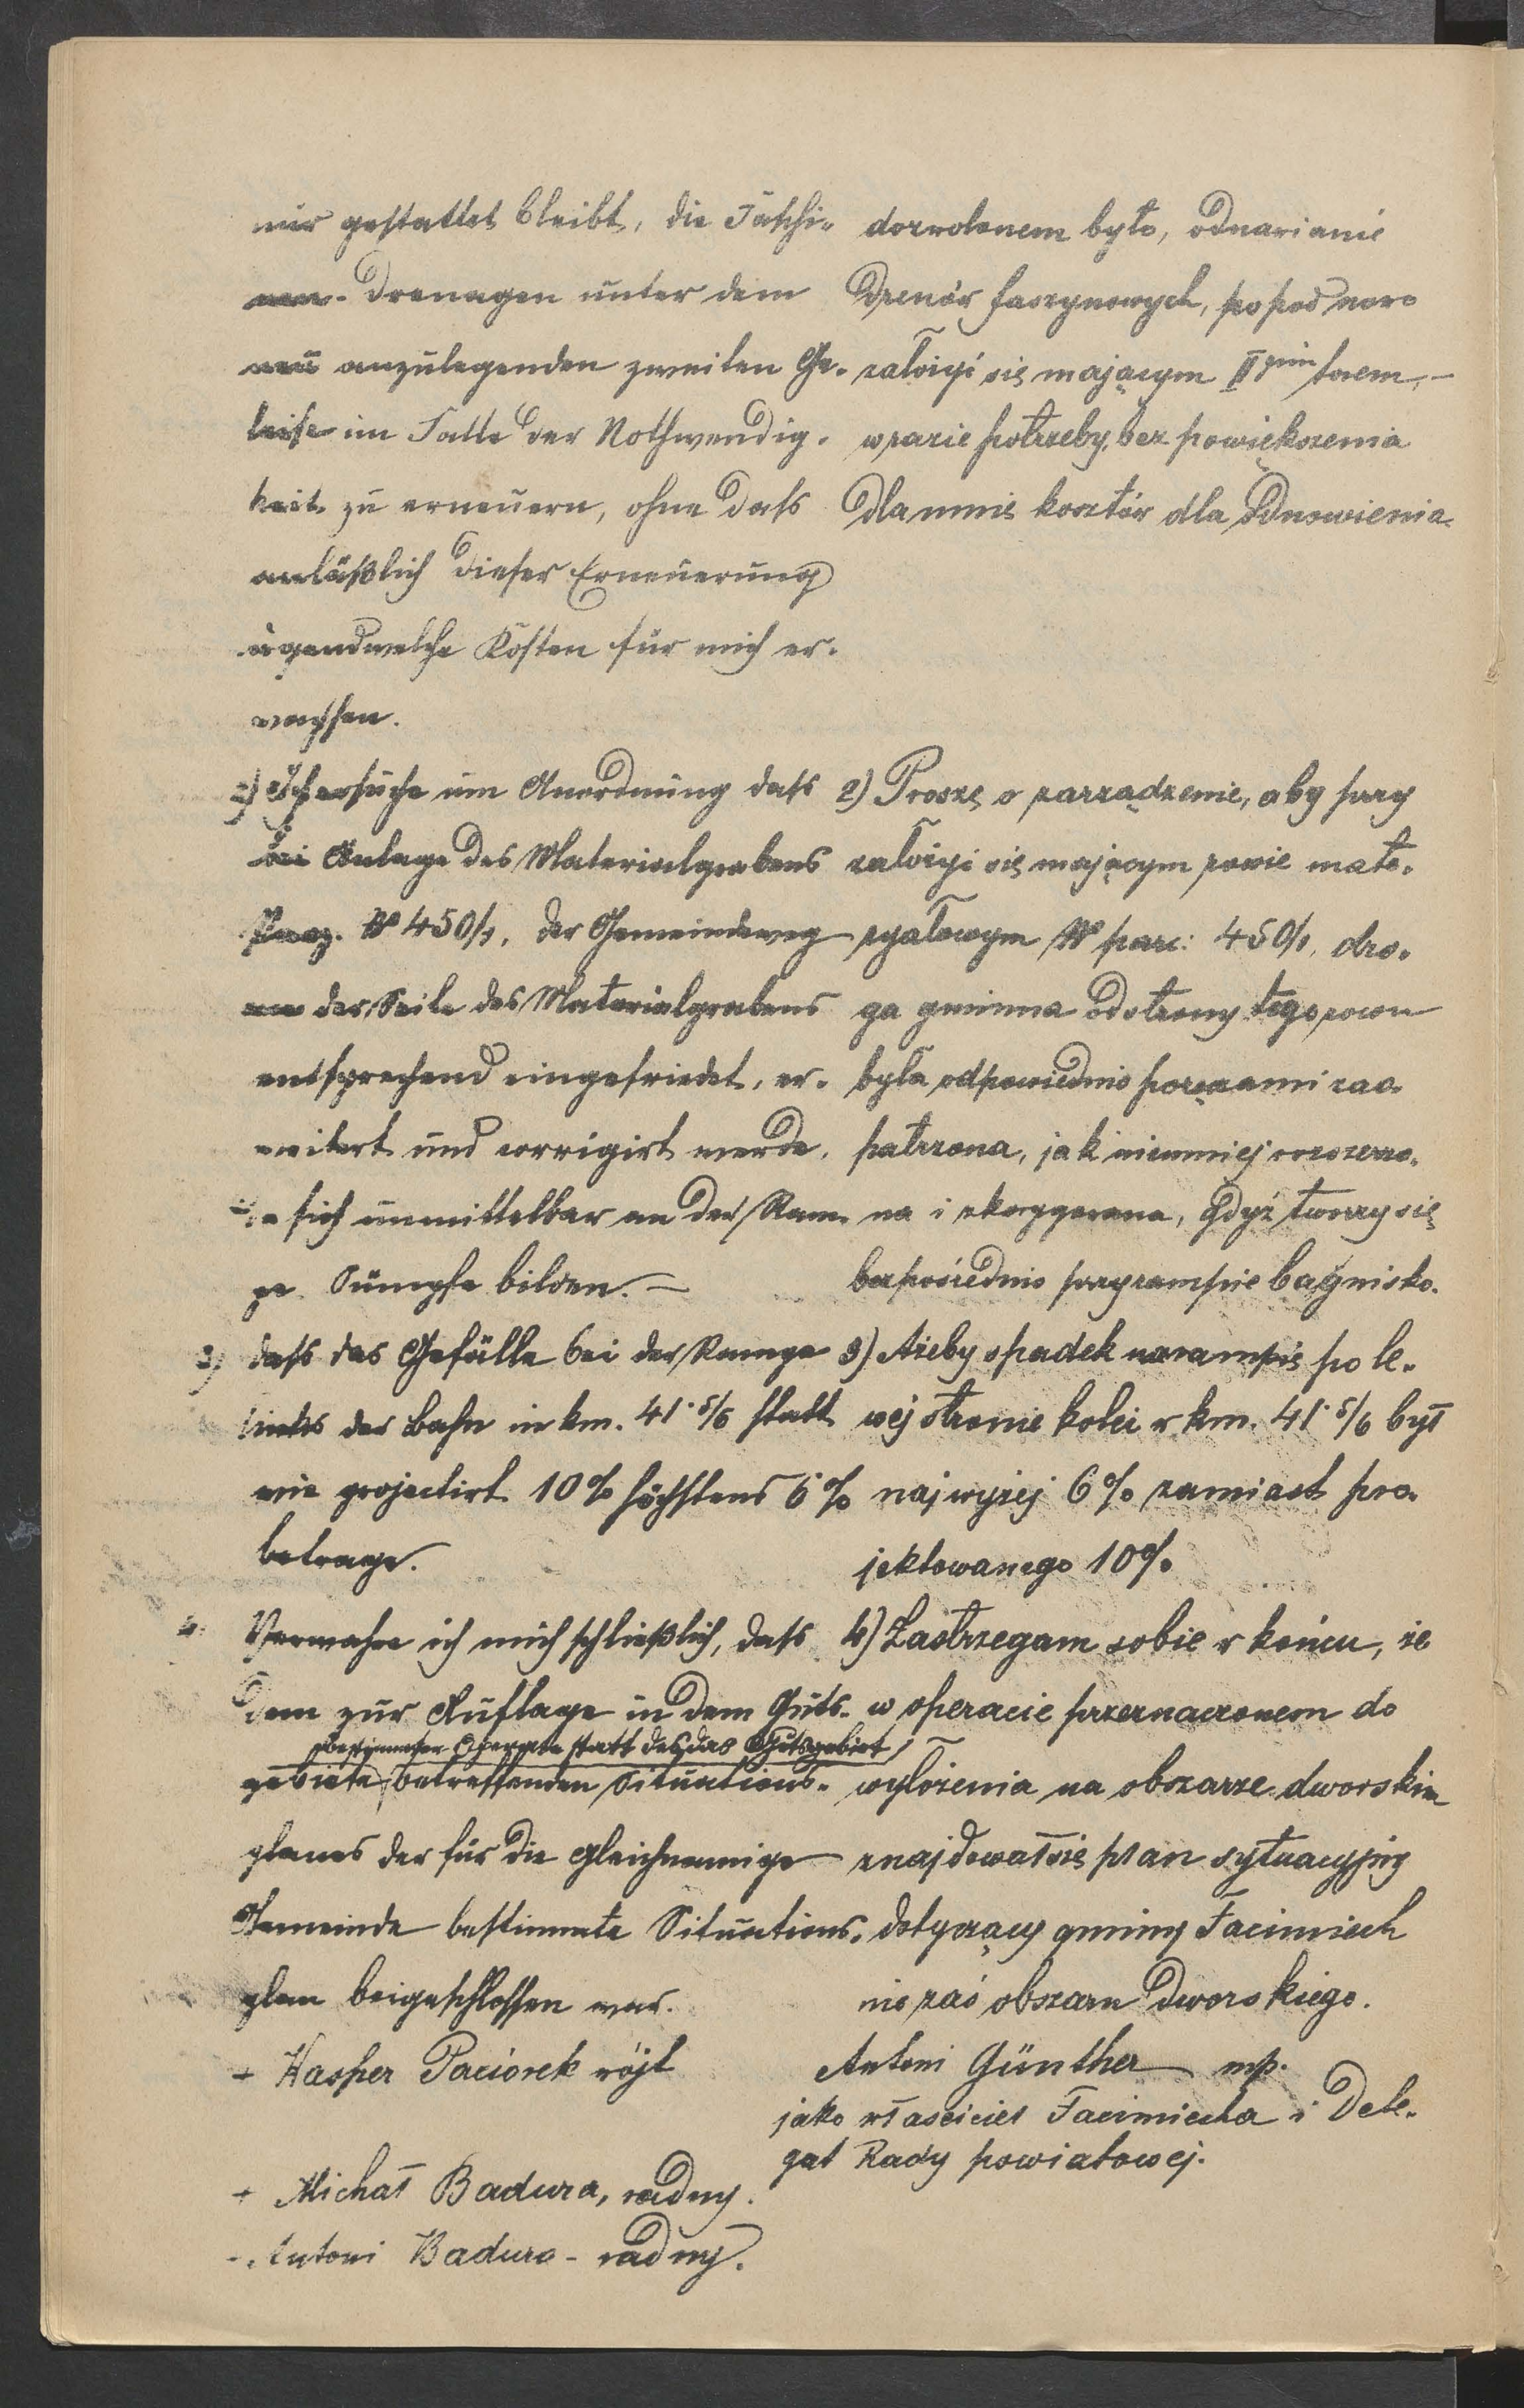 nur gestattet bleibt, die Faschi-
nen-Drenagen unter dem
neu anzulegenden zweiten Ge-
leise im Falle der Nothwendig-
keit zu erneuern, ohne dass
anläßlich dieser Erneuerung
irgendwelche Kosten für mich er-
wachsen.
2) Ich ersuche um Anordnung dass
bei Anlage des Materialgrabens
Parz. № 450/1, der Gemeindeweg
an der Seite des Materialgrabens
entsprechend eingefriedet, er-
weitert und corrigirt werde,
da sich unmittelbar an der Ram-
pe Sümpfe bilden. —
3) dass das Gefälle bei der Rampe
links der Bahn in km. 41·5/6 statt
wie projectirt 10% höchstens 6%
betrage.
4. Verwahre ich mich schließlich, dass
dem zur Auflage in dem Guts-
bestimmten Operate statt des das Gutsgebiet
gebiete betreffenden Situations-
planes der für die gleichnamige
Gemeinde bestimmte Situations-
plan beigeschlossen war.
+ Kasper Paciorek wójt
+ Michał Badura, radny.
+ Antoni Badura - radny.
dozwolonem było, odnawianie
drenów faszynowych, popod nowo
założyć się mającym II gim torem, —
w razie potrzeby, bez powiększenia
dla mnie kosztów dla odnowienia.
2) Proszę o zarządzenie, aby przy
założyć się mającym rowie mate-
ryałowym № parc: 450/1, dro-
ga gminna od strony tego rowu
była odpowiednio poręczami zao-
patrzona, jak niemniej rozszerzo-
na i skorygowana, gdyż tworzy się
bezpośrednio przy rampie bagnisko.
3) Ażeby spadek na rampie po le-
wej stronie kolei w km. 41·5/6 był
najwyżej 6% zamiast pro-
jektowanego 10%
4) Zastrzegam sobie w końcu, że
w operacie przeznaczonem do
wyłożenia na obszarze dworskim
znajdował się plan sytuacyjny
dotyczący gminy Facimiech
nie zaś obszaru dworskiego.
Antoni Günther mp.
jako właściciel Facimiecha i Dele-
gat Rady powiatowej.